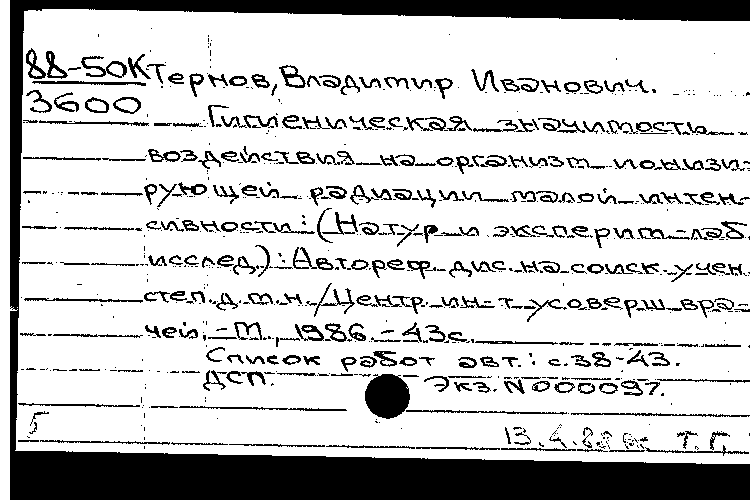 88-50К Тернов, Владимир Иванович.
3600
Гигиеническая значимость
воздействия на организм ионизи-
рующей радиации малой интен-
сивности: (Натур. и эксперим.-лаб.
исслед.): Автореф. дис. на соиск. учен.
степ. д.м.н. /Центр. ин-т усоверш. вра-
чей. - М., 1986. - 43с.
Список работ авт.: с.38-43.
ДСП. Экз. N 000097.
5
13.4.88 Т.Г.